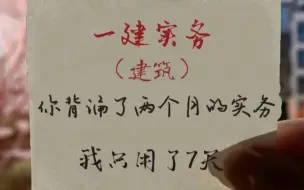 一建实务
（建筑）
你背诵了两个月的实务
我只用了7天